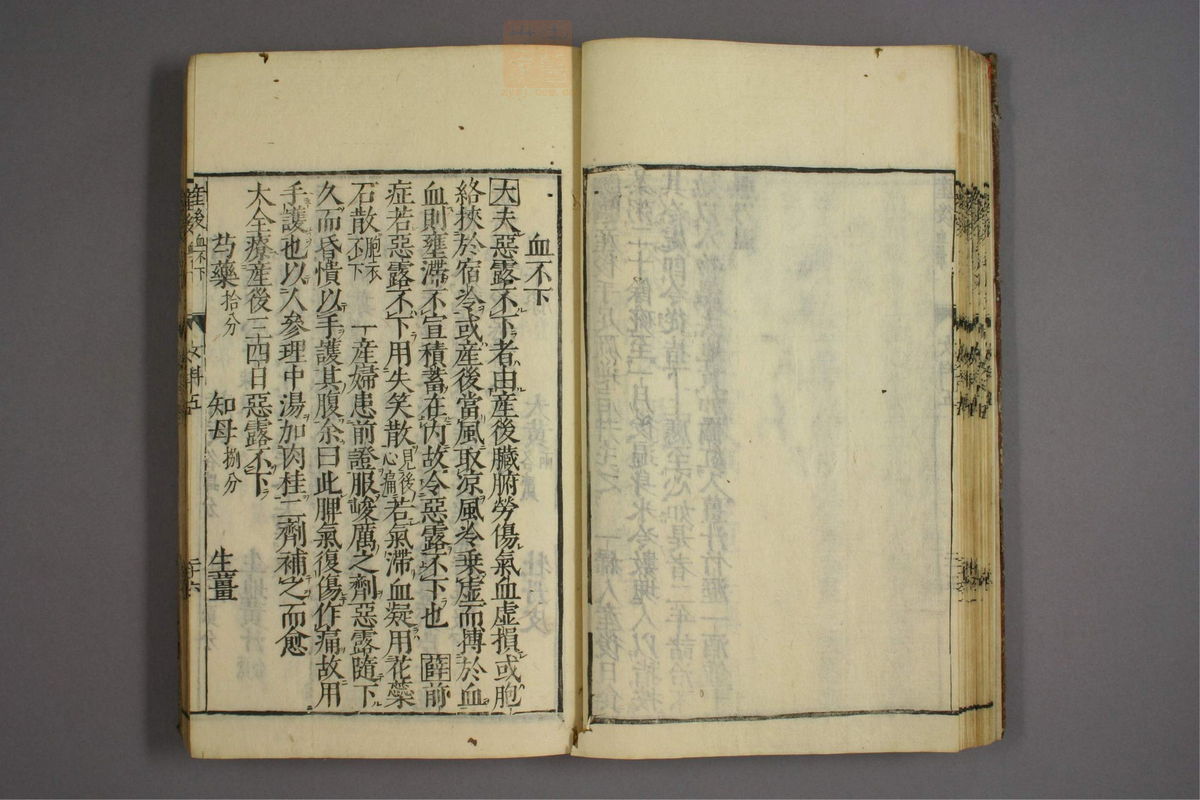 血不下
大夫惡露不下者由産後臟腑勞傷氣血虛損或胞
絡挾於宿冷或産後當風取凉風冷乗虛而搏於血
血則壅滯不宣積蓄在內故令惡露不下也 薛前
症若惡露不下用失笑散見後心痛若氣滯血凝用花蘂
石散胞衣不下 一産婦患前證服峻厲之劑惡露隨下
久而昏憒以手護其腹余曰此脾氣復傷作痛故用
手護也以人參理中湯加肉桂二劑補之而愈
大全療産後三四日惡露不下
芍藥拾分 知母捌分 生薑
産後 血不下 女科五 二十六